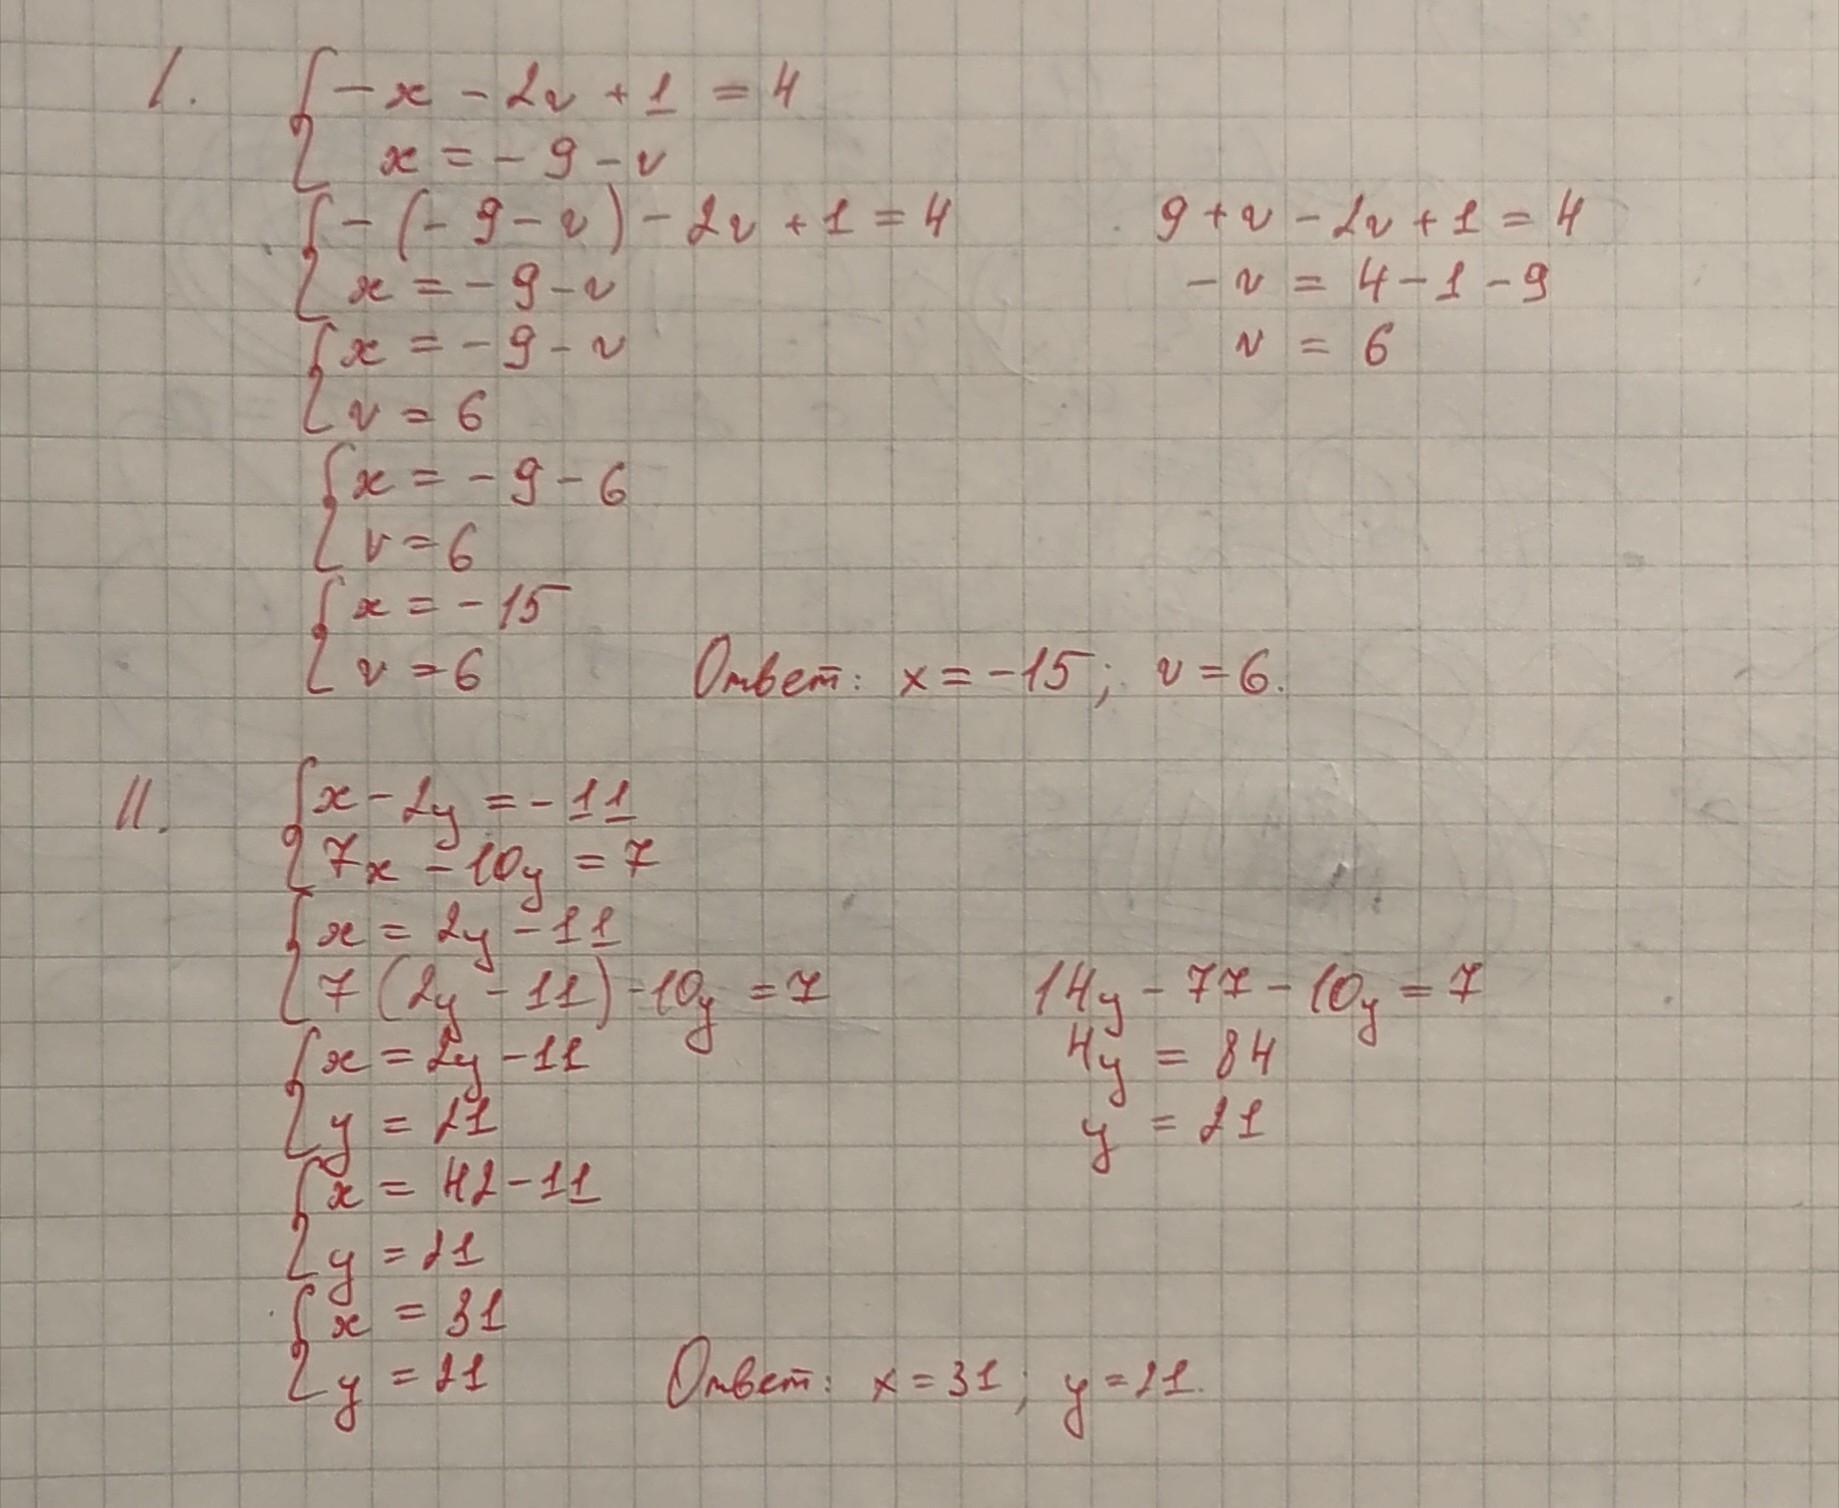 I. { -x - 2v + 1 = 4
x = -9 - v
{ -(-9 - v) - 2v + 1 = 4
9 + v - 2v + 1 = 4
x = -9 - v
-v = 4 - 1 - 9
{ x = -9 - v
v = 6
v = 6
{ x = -9 - 6
v = 6
{ x = -15
v = 6
Ответ: x = -15; v = 6.
II. { x - 2y = -11
7x - 10y = 7
{ x = 2y - 11
7(2y - 11) - 10y = 7
14y - 77 - 10y = 7
{ x = 2y - 11
4y = 84
y = 21
y = 21
{ x = 42 - 11
y = 21
{ x = 31
y = 21
Ответ: x = 31; y = 21.